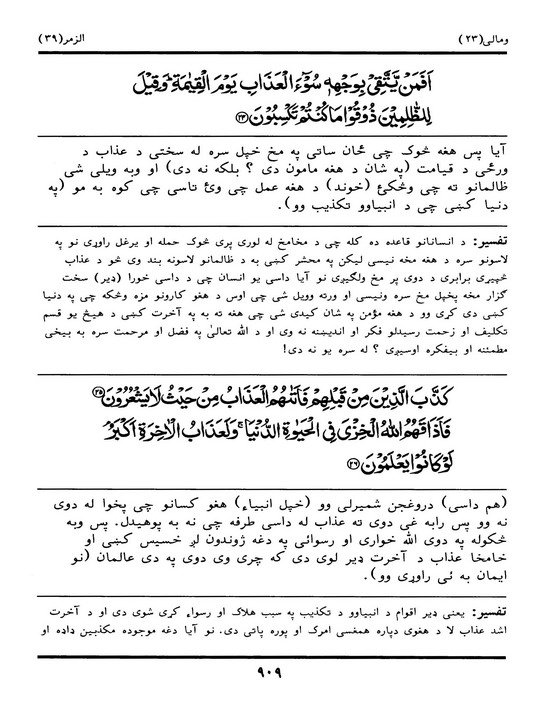 ومالي(٢٣) الزمر(٣٩)
اَفَمَنْ يَّتَّقِىْ بِوَجْهِهٖ سُوْٓءَ الْعَذَابِ يَوْمَ الْقِيٰمَةِ ؕ وَقِيْلَ
لِلظّٰلِمِيْنَ ذُوْقُوْا مَا كُنْتُمْ تَكْسِبُوْنَ ﴿٢٤﴾
آيا پس هغه څوک چي ځان ساتي په مخ خپل سره له سختي د عذاب د
ورځي د قيامت (په شان د هغه مامون دى ؟ بلکه نه دى) او وبه ويلى شى
ظالمانو ته چي وڅکئ (خوند) د هغه عمل چي وئ تاسي چي کوه به مو (په
دنيا کښي چي د انبياوو تکذيب وو).
تفسير: د انسانانو قاعده ده کله چي د مخامخ له لوري پرى څوک حمله او يرغل راوړي نو په
لاسونو سره د هغه مخه نيسي ليکن په محشر کښي به د ظالمانو لاسونه بند وي څو د عذاب
څپيړى برابري د دوى پر مخ ولګيږي نو آيا داسي يو انسان چي د داسي خورا (ډير) سخت
ګزار مخه پخپل مخ سره ونيسي او ورته وويل شي چي اوس د هغو کارونو مزه وڅکه چي په دنيا
کښي دى کړي وو د هغه مؤمن په شان کيدى شي چي هغه ته به په آخرت کښي د هيڅ يو قسم
تکليف او زحمت رسيدلو فکر او انديښنه نه وي او د الله تعالىٰ په فضل او مرحمت سره به بيخي
مطمئنه او بيفکره اوسيږي ؟ له سره يو نه دى!
كَذَّبَ الَّذِيْنَ مِنْ قَبْلِهِمْ فَاَتٰىهُمُ الْعَذَابُ مِنْ حَيْثُ لَا يَشْعُرُوْنَ ﴿٢٥﴾
فَاَذَاقَهُمُ اللّٰهُ الْخِزْىَ فِى الْحَيٰوةِ الدُّنْيَا ۚ وَلَعَذَابُ الْاٰخِرَةِ اَكْبَرُ ۘ
لَوْ كَانُوْا يَعْلَمُوْنَ ﴿٢٦﴾
(هم داسي) دروغجن شميرلى وو (خپل انبياء) هغو کسانو چي پخوا له دوى
نه وو پس رابه غى دوى ته عذاب له داسي طرفه چي نه به پوهيدل. پس وبه
څکوله په دوى الله خوارى او رسوائى په دغه ژوندون لږ خسيس کښي او
خامخا عذاب د آخرت ډير لوى دى که چرى وى دوى په دى عالمان (نو
ايمان به ئى راوړى وو).
تفسير: يعني ډير اقوام د انبياوو د تکذيب په سبب هلاک او رسواء کړى شوى دى او د آخرت
اشد عذاب لا د هغوى دپاره همغسي امرک او پوره پاتى دى. نو آيا دغه موجوده مکذبين ډاډه او
٩٠٩